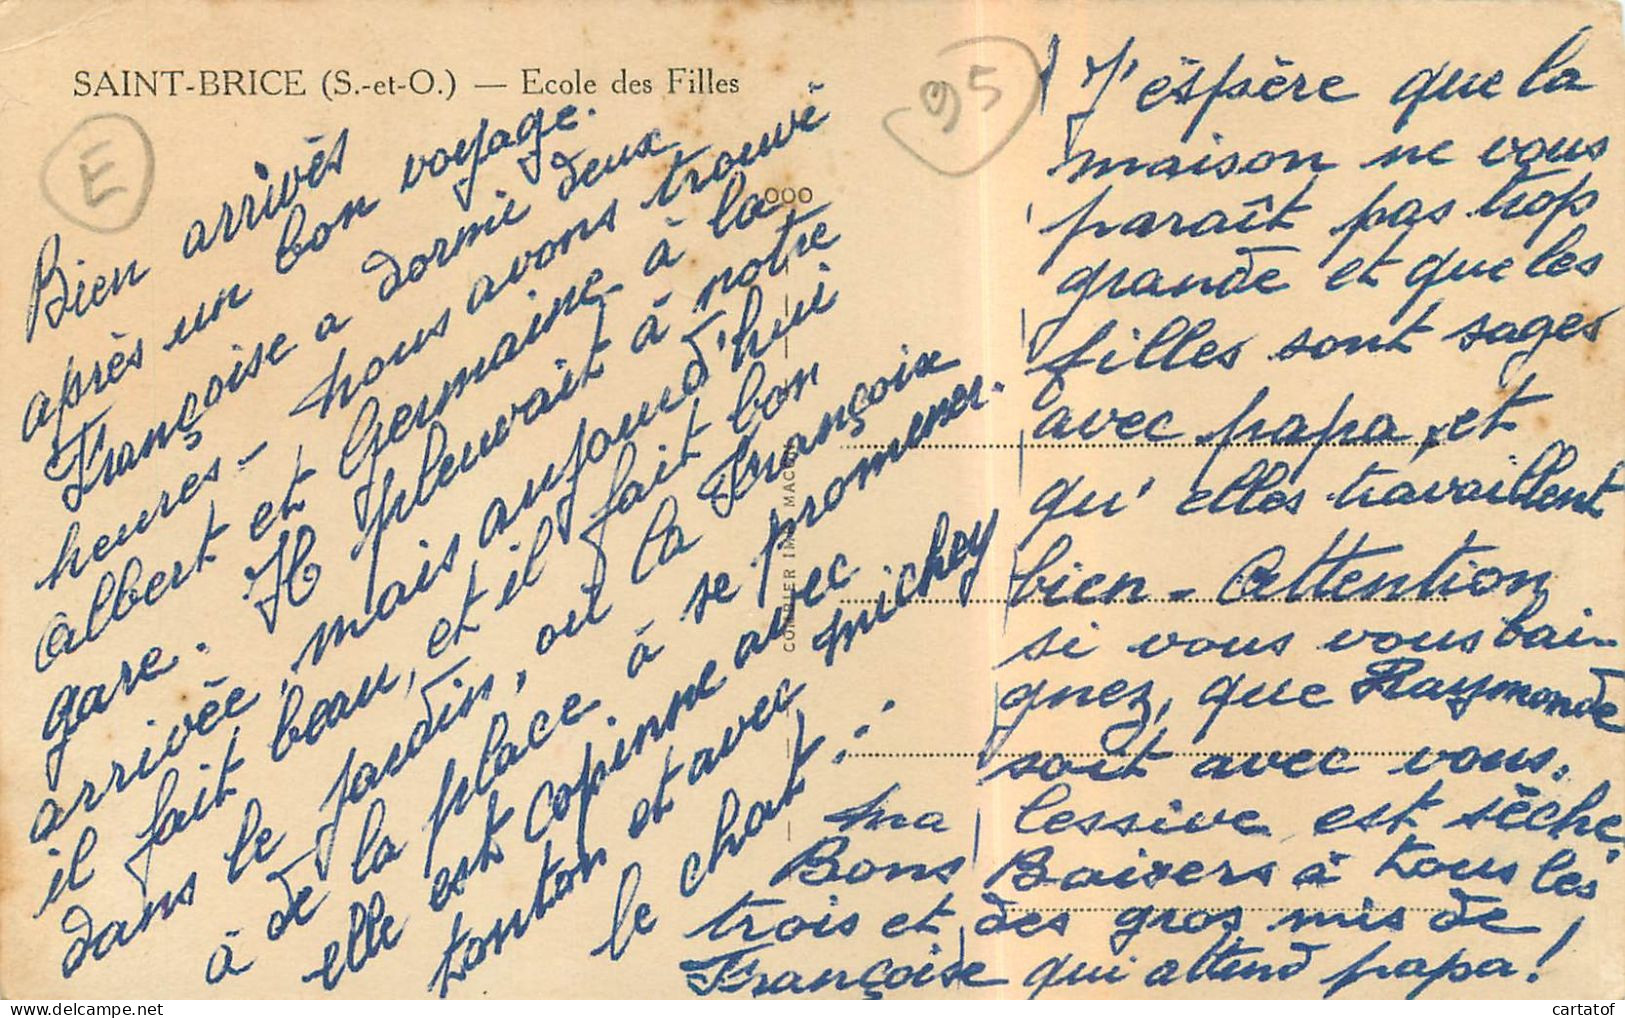 SAINT-BRICE (S.-et-O.) — Ecole des Filles
E
95
Bien arrivés
après un bon voyage.
Françoise a dormi deux
heures - nous avons trouvé
Albert et Germaine à la
gare. Il pleuvait à notre
arrivée, mais aujourd'hui
il fait beau, et il fait bon
dans le jardin, où la Françoise
à de la place à se promener.
elle est copinne avec
tonton et avec michey
le chat !
J'éspère que la
maison ne vous
paraît pas trop
grande et que les
filles sont sages
avec papa, et
qu'elles travaillent
bien - Attention
si vous vous bai-
gnez, que Raymonde
soit avec vous.
Ma lessive est sèche
Bons Baisers à tous les
trois et des gros mis de
Françoise qui attend papa !
COMBIER IMP. MACON
cartatof